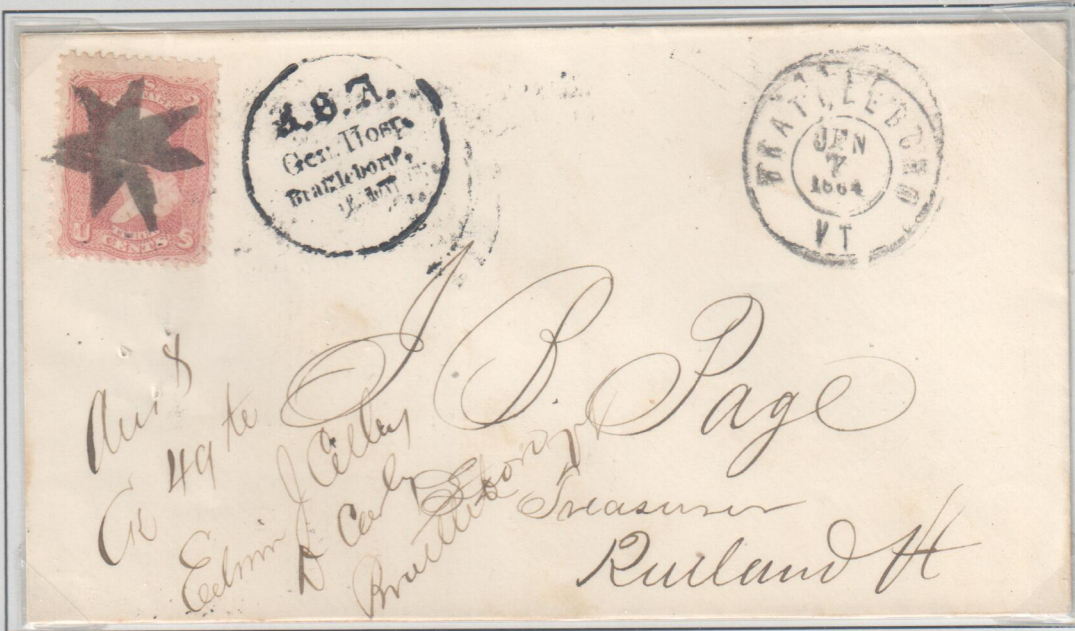 U CENTS S
U.S.A.
Gen. Hosp.
Brattleboro,
BRATTLEBORO
JAN
7
1864
VT
J B. Page
Treasurer
Rutland Vt
Ans 8
Edwin J
D
Brattleboro Vt